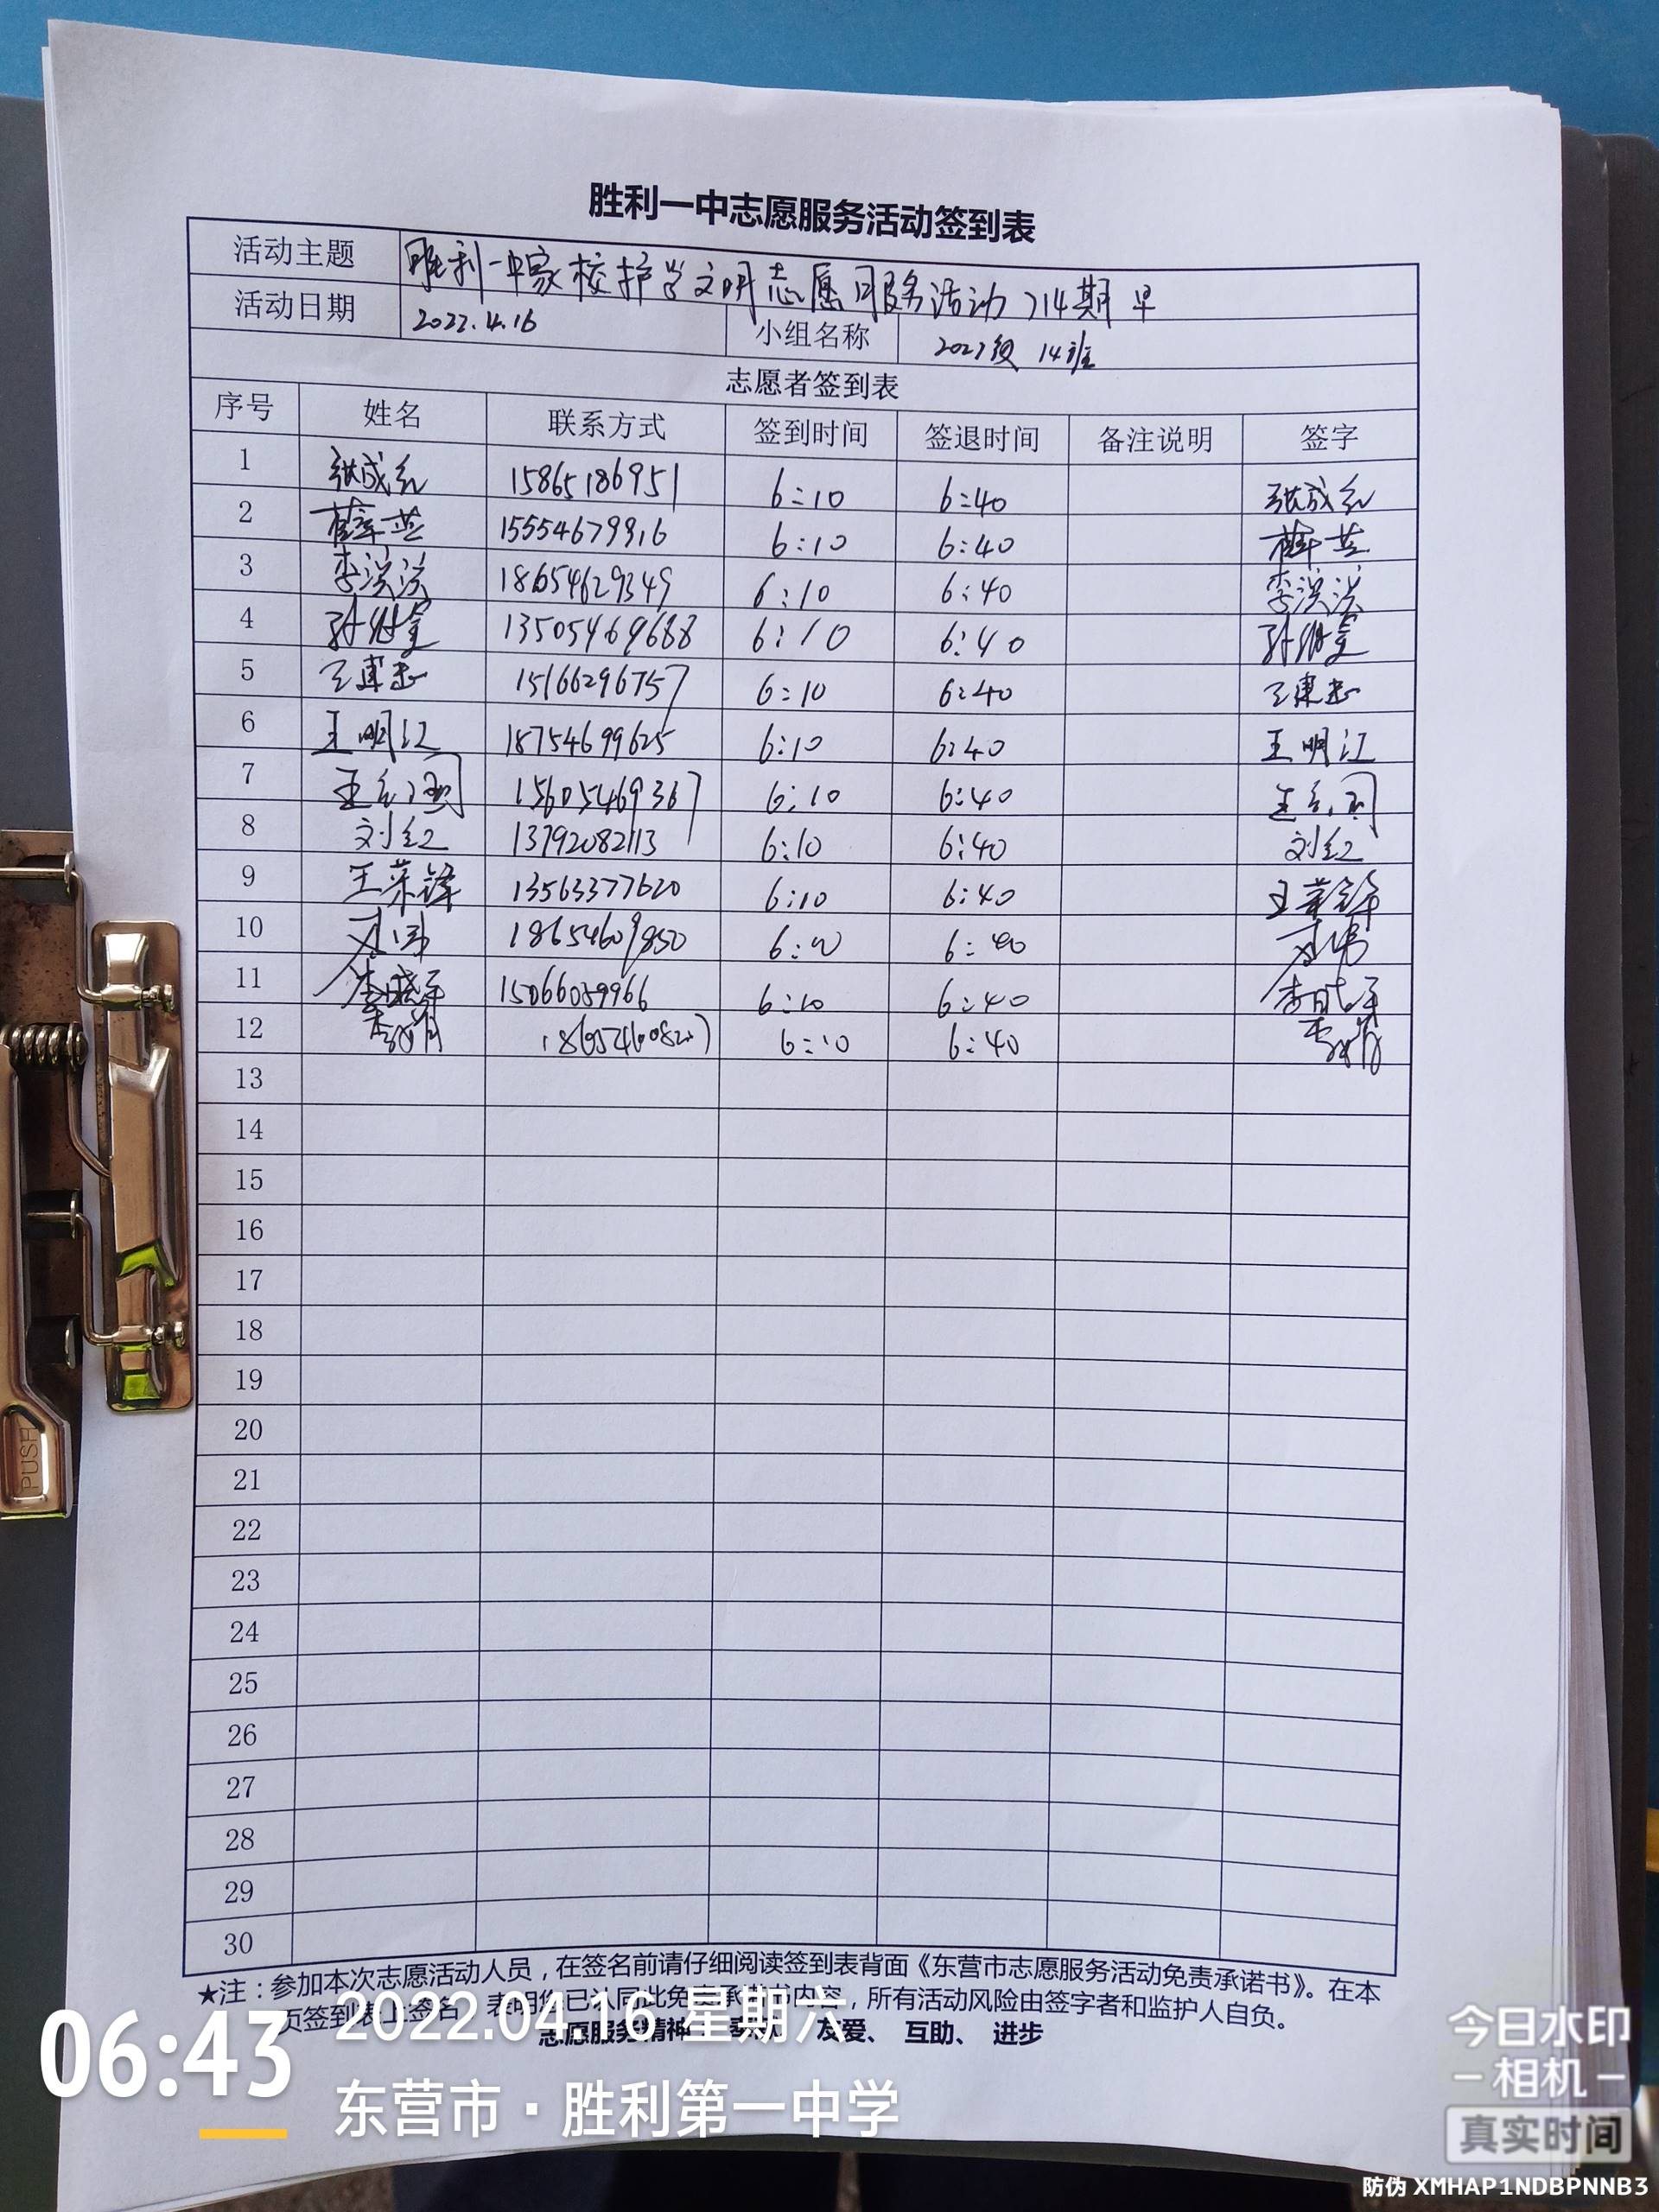 胜利一中志愿服务活动签到表
活动主题 胜利一中家校护学文明志愿服务活动714期 早
活动日期 2022.4.16 小组名称 2021级 14班
志愿者签到表
序号 姓名 联系方式 签到时间 签退时间 备注说明 签字
1 张成红 15865186951 6:10 6:40 张成红
2 15554679916 6:10 6:40
3 李洪滨 18654629349 6:10 6:40 李洪滨
4 13505469688 6:10 6:40
5 王建忠 15166296757 6:10 6:40 王建忠
6 王明江 18754699625 6:10 6:40 王明江
7 15605469367 6:10 6:40
8 刘红 13792082113 6:10 6:40 刘红
9 王荣锋 13563377620 6:10 6:40 王荣锋
10 18654609850 6:10 6:40
11 李晓军 15066059966 6:10 6:40 李晓军
12 6:10 6:40
13
14
15
16
17
18
19
20
21
22
23
24
25
26
27
28
29
30
★注：参加本次志愿活动人员，在签名前请仔细阅读签到表背面《东营市志愿服务活动免责承诺书》。在本
页签到表上签名，表明您已认同此免责承诺书内容，所有活动风险由签字者和监护人自负。
志愿服务精神 奉献、友爱、互助、进步
06:43
2022.04.16 星期六
东营市·胜利第一中学
PUSH
今日水印
相机
真实时间
防伪 XMHAP1NDBPNNB3